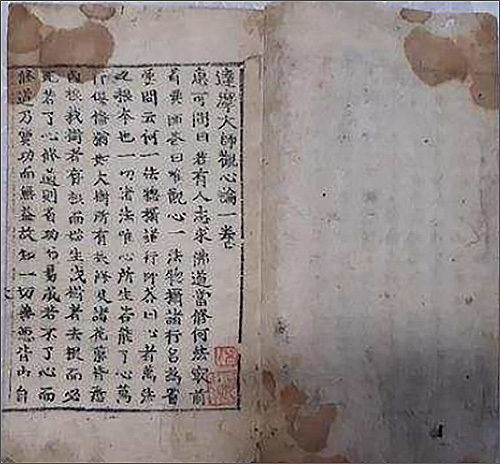 達摩大師觀心論一卷
惠可問曰若有人志求佛道當修何法㝡前
省要師答曰唯觀心一法惣攝諸行名為省
要問云何一法惣攝諸行師答曰心者萬法
之根本也一切諸法唯心所生若能了心萬
行俱備猶如大樹所有枝條及諸花菓皆悉
因根栽樹者存根而始生伐樹者去根而必
死若了心修道則省功而易成若不了心而
修道乃費功而無益故知一切善惡皆由自